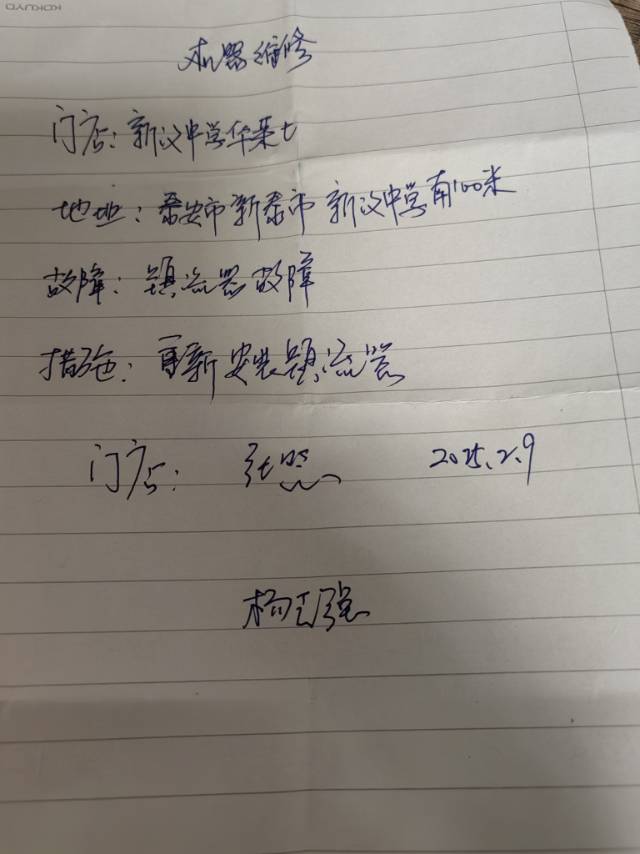 KOKUYO
机器维修
门店：新汶中学华莱士
地址：泰安市新泰市新汶中学南100米
故障：镇流器故障
措施：更新安装镇流器
门店：张照 2025.2.9
杨玉强